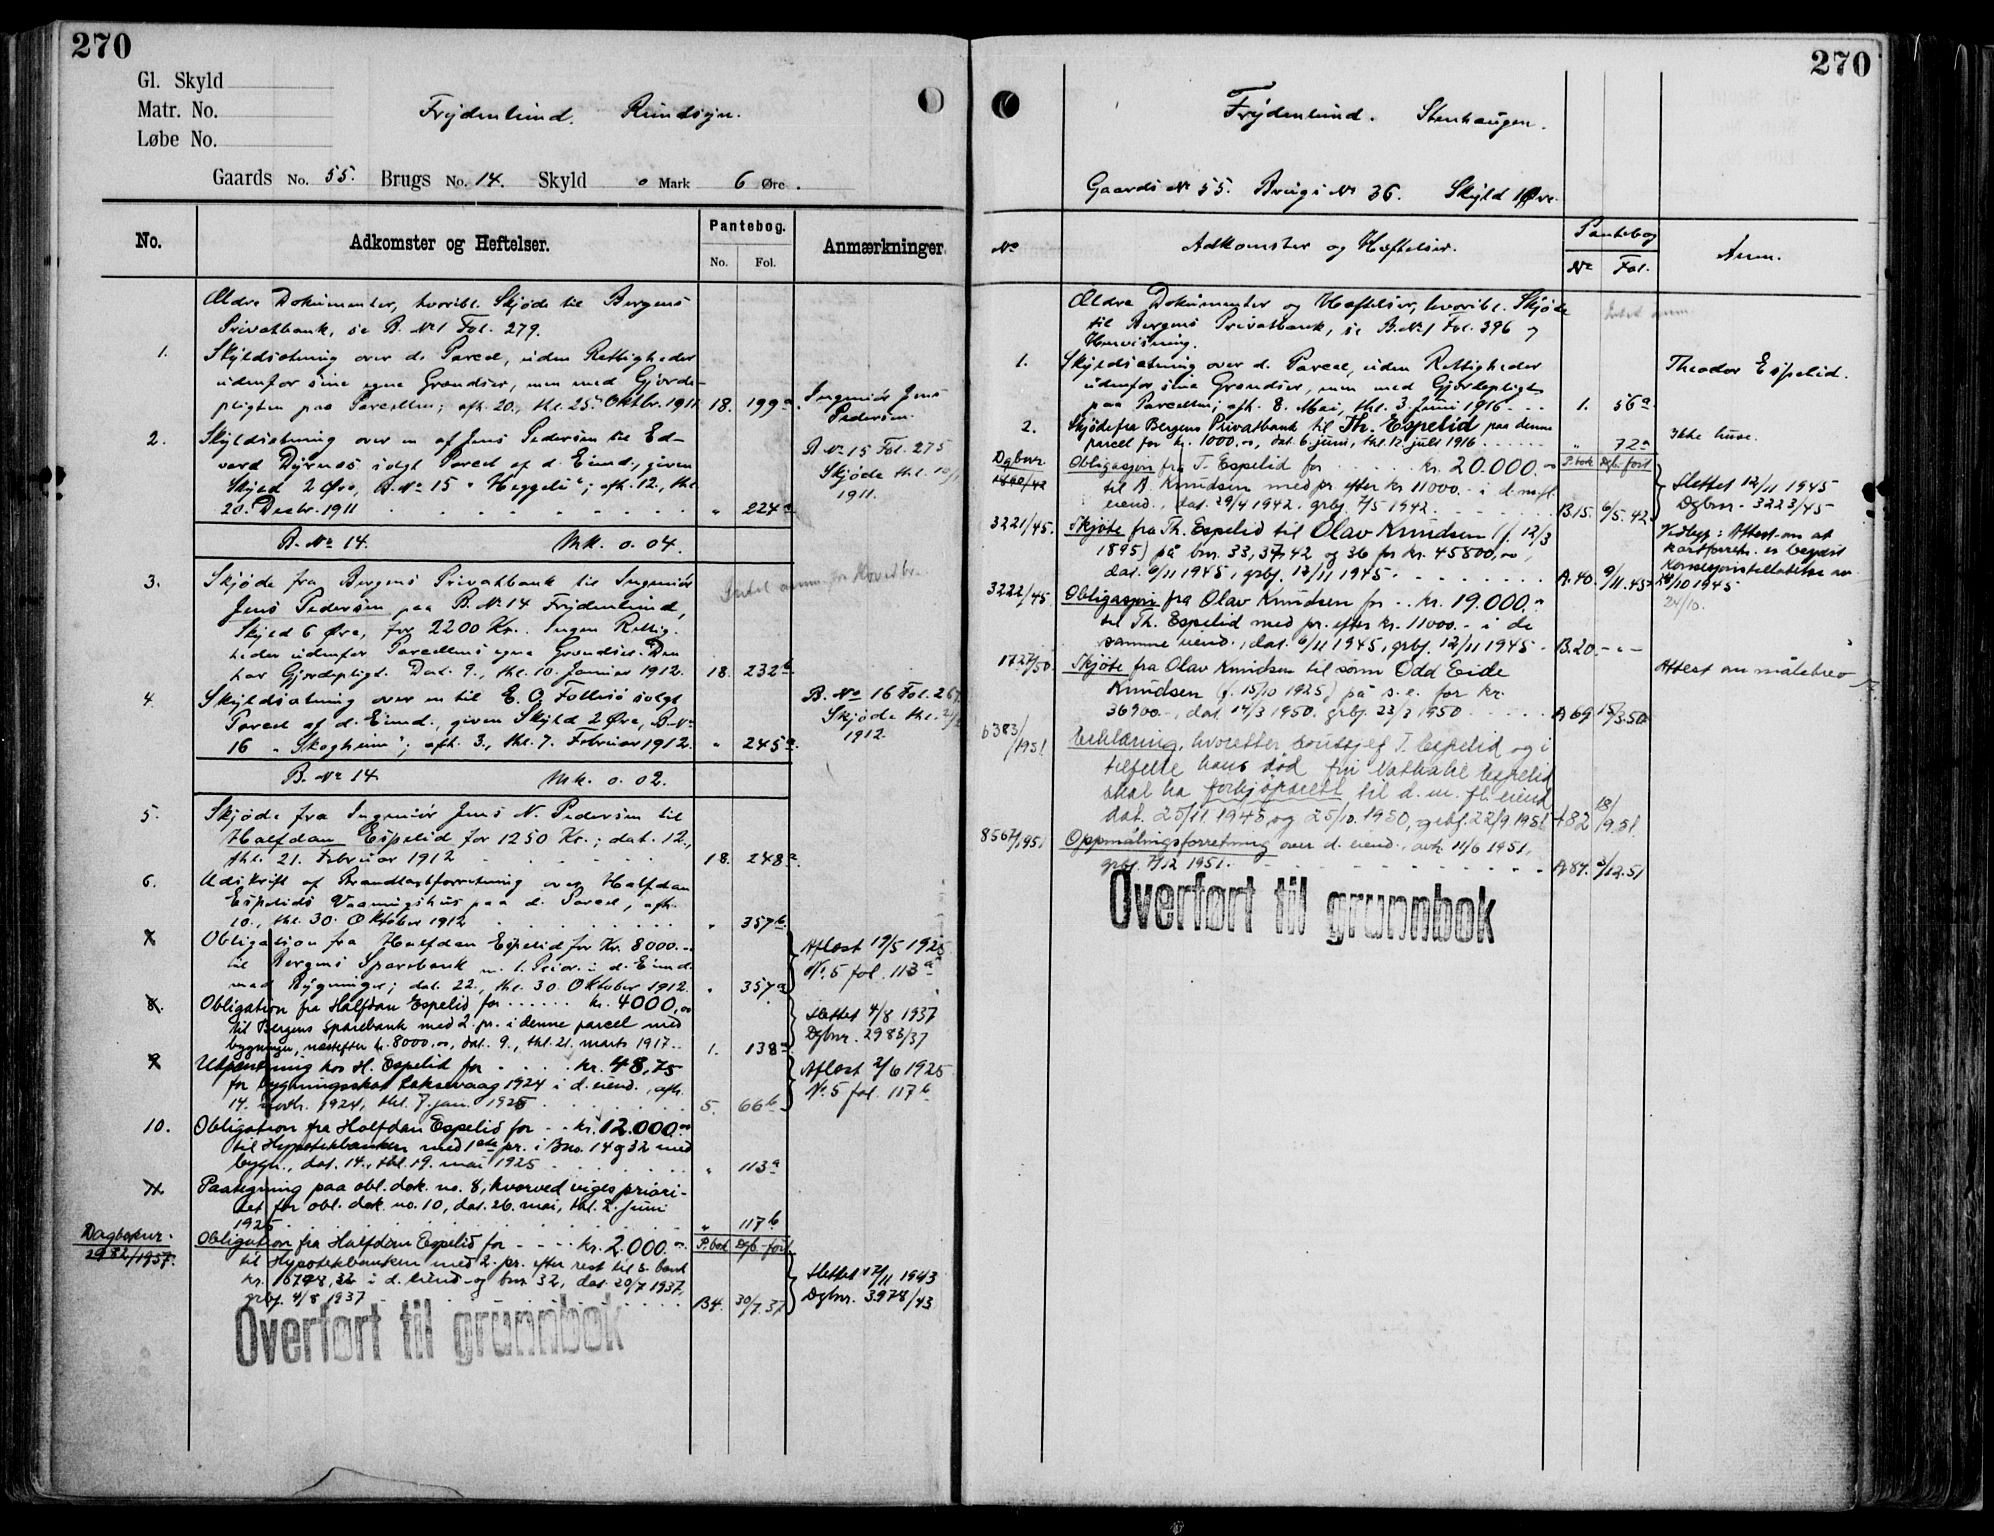 270
Gl. Skyld
Matr. No.
Løbe No.
Frydenlund. Rundsyn.
Gaards No. 55. Brugs No. 14. Skyld 0 Mark 6 Øre.
No. Adkomster og Heftelser. Pantebog. No. Fol. Anmærkninger.
Ældre Dokumenter, hvoribl. Skjøde til Bergens
Privatbank, se B. No 1 Fol. 279.
1. Skyldsætning over d. Parcel, uden Rettigheder
udenfor sine egne Grændser, men med Gjerde-
pligten paa Parcellen; afh. 20., thl. 25. Oktbr. 1911. 18. 199a. Ingeniör Jens
Pedersen.
2. Skyldsætning over en af Jens Pedersen til Ed-
vard Dyrnes solgt Parcel af d. Eiend., given
Skyld 2 Øre, B. No 15 "Heggeli"; afh. 12., thl.
20. Decbr. 1911 " 224a
B No 15 Fol. 275
Skjøde thl. 10/1
1911.
B. No 14. Mk. 0.04.
3. Skjøde fra Bergens Privatbank til Ingeniör
Jens Pedersen paa B. No 14 Frydenlund,
Skyld 6 Øre, for 2200 Kr. Ingen Rettig-
heder udenfor Parcellens egne Grændser. Den
har Gjerdepligt. Dat. 9., thl. 10. Januar 1912. 18. 232b
4. Skyldsætning over en til E. O. Follesö solgt
Parcel af d. Eiend., given Skyld 2 Øre, B. No
16 "Skogheim"; afh. 3., thl. 7. Februar 1912. " 245a
B. No 16 Fol. 267.
Skjøde thl.
1912.
B. No 14 Mk. 0.02.
5. Skjøde fra Ingeniör Jens N. Pedersen til
Halfdan Espelid for 1250 Kr.; dat. 12.,
thl. 21. Februar 1912 18. 248a
6. Udskrift af Brandtaxtforretning over Halfdan
Espelids Vaaningshus paa d. Parcel, afh.
10., thl. 30. Oktober 1912 " 357b
7. Obligation fra Halfdan Espelid for Kr. 8000.-
til Bergens Sparebank m. 1. Prior. i d. Eiend.
med Bygninger; dat. 22., thl. 30. Oktober 1912. " 357a
Aflæst 19/5 1925
No. 5 fol. 113a
8. Obligation fra Halfdan Espelid for kr. 4000,00
til Bergens Sparebank med 2. pr. i denne parcel med
bygninger, næstefter kr. 8000,00, dat. 9., thl. 21. marts 1917. 1. 138a
Slettet 4/8 1937
Dgbnr. 2983/37
9. Utpantning hos H. Espelid for kr. 48,75
for bygningsskat Laksevaag 1924 i d. eiend., afh.
14. novbr. 1924, thl. 7. jan. 1925 5. 66b
Aflæst 2/6 1925
No. 5 fol. 117b
10. Obligation fra Halfdan Espelid for kr. 12.000.00
til Hypotekbanken med 1ste pr. i Bno. 14 og 32 med
bygn., dat. 14., thl. 19. mai 1925 " 113a
11. Paategning paa obl. dok. no. 8, hvorved viges priori-
tet for obl. dok. no. 10, dat. 26. mai, thl. 2. juni
1925 " 117b
Dagboknr. Obligation fra Halfdan Espelid for kr. 2.000.- P.bok Dgb.-ført
2982/1937. til Hypotekbanken med 2. pr. efter rest til s. bank
i d. eiend. og bnr. 32, dat. 20/7 1937,
grbf. 4/8 1937 B4. 30/7.37
Slettet 17/11 1943
Dgbnr. 3978/43
Overført til grunnbok
270
Frydenlund. Stenhaugen.
Gaards No 55. Brugs No 36. Skyld 1 Øre.
No Adkomster og Hæftelser. Pantebog No Fol. Anm.
Ældre Dokumenter og Hæftelser, hvoribl. Skjøde
til Bergens Privatbank, se B. No 1 Fol. 396 og
Henvisning.
1. Skyldsætning over d. Parcel, uden Rettigheder
udenfor sine Grændser, men med Gjerdepligt
paa Parcellen; afh. 8. Mai, thl. 3. Juni 1916. 1. 56a.
Theodor Espelid.
2. Skjøde fra Bergens Privatbank til Th. Espelid paa denne
parcel for kr. 1000.00, dat. 6. juni, thl. 12. juli 1916 " 72a
Ikke huse.
Dgbnr. Obligasjon fra T. Espelid for kr. 20.000.- P.bok Dgb. ført
til A. Knudsen med pr. efter kr 11000.- i d. m. fl.
eiend., dat. 29/4 1942, grbf. 7/5 1942 B.15. 6/5.42
Slettet 12/11 1945
Dgbnr. 3223/45
3221/45. Skjøte fra Th. Espelid til Olav Knudsen (f. 12/3
1895) på bnr. 33, 37, 42 og 36 for kr. 45800,00,
dat. 6/11 1945, grbf. 12/11 1945. A.40. 9/11.45
Vedlegg: Attest om at
kartforretn. er begjært
Konsesjonstillatelse av
/10 1945
24/10.
3222/45 Obligasjon fra Olav Knudsen for kr. 19.000.-
til Th. Espelid med pr. efter kr. 11000.- i de
samme eiend., dat. 6/11 1945, grbf. 12/11 1945. B.20 - " -
1727/50. Skjøte fra Olav Knudsen til sønn Odd Eide
Knudsen (f. 15/10 1925) på s. e. for kr.
36900.-, dat. 14/3 1950. grbf. 23/3 1950 A 69 15/3.50
Attest om målebrev
6383/1951 Erklæring, hvoretter boutsjef T. Espelid og i
tilfelle hans død fru Nathalie Espelid
skal ha forkjøpsrett til d. m. fl. eiend.
dat. 25/11 1945 og 25/10. 1950, grbf. 22/9 1951 A82 18/9.51.
8567/1951 Oppmålingsforretning over d. eiend., avh. 11/6 1951,
grbf. 7/12 1951. A84. 3/12.51
Overført til grunnbok